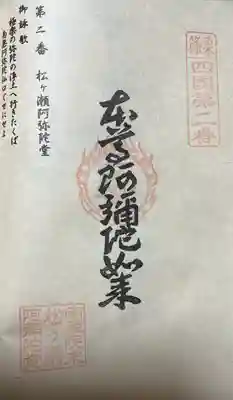 四國第二番
本尊阿彌陀如来
第二番 松ヶ瀬阿弥陀堂
御詠歌
極楽の弥陀の浄土へ行きたくば
南無阿弥陀仏口ぐせにせよ